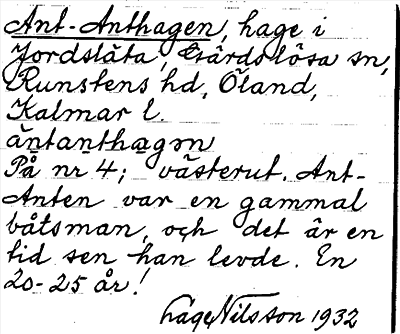 Ant-Anthagen, hage i
Jordslåta, Gärdslösa sn,
Runstens hd, Öland,
Kalmar l.
ántanthagən
På nr 4; västerut. Ant-
Anten var en gammal
båtsman, och det är en
tid sen han levde. En
20-25 år!
Låge Nilsson 1932